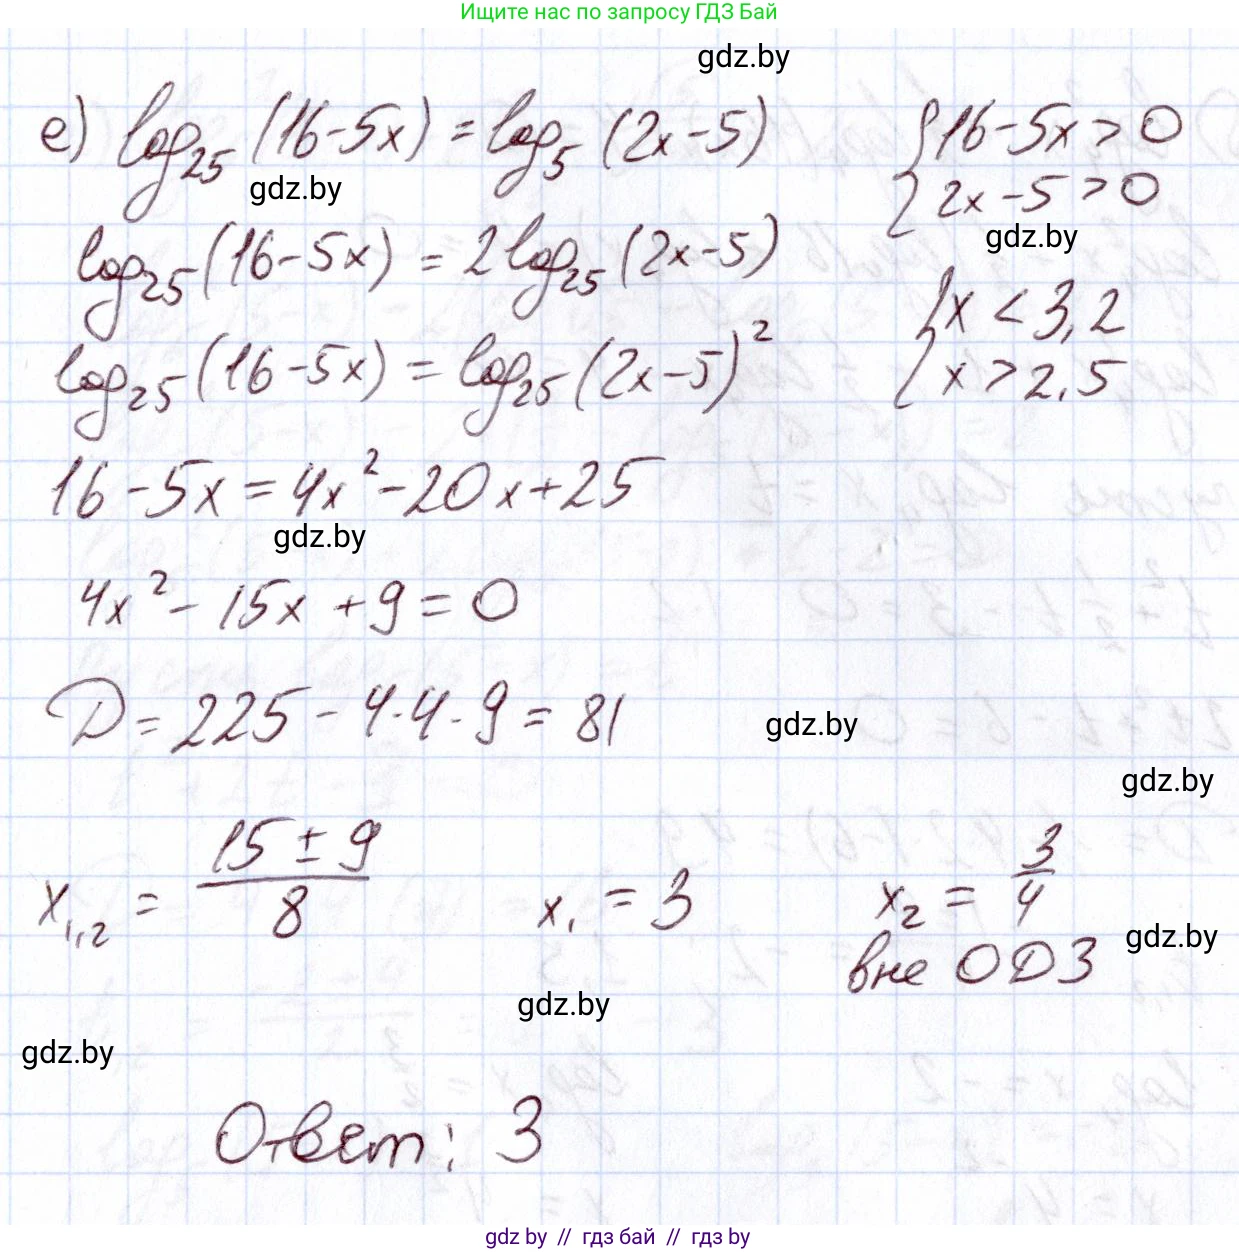 Ищите нас по запросу ГДЗ Бай
gdz.by
е) log₂₅ (16-5x) = log₅ (2x-5) { 16-5x > 0
gdz.by
2x-5 > 0
gdz.by
log₂₅ (16-5x) = 2log₂₅ (2x-5)
{ x < 3,2
log₂₅ (16-5x) = log₂₅ (2x-5)²
x > 2,5
16-5x = 4x²-20x+25
gdz.by
4x² - 15x + 9 = 0
D = 225 - 4·4·9 = 81
gdz.by
gdz.by
x₁,₂ = (15 ± 9)/8 x₁ = 3 x₂ = 3/4
gdz.by
вне ОДЗ
gdz.by
gdz.by
Ответ: 3
gdz by // гдз бай // гдз by